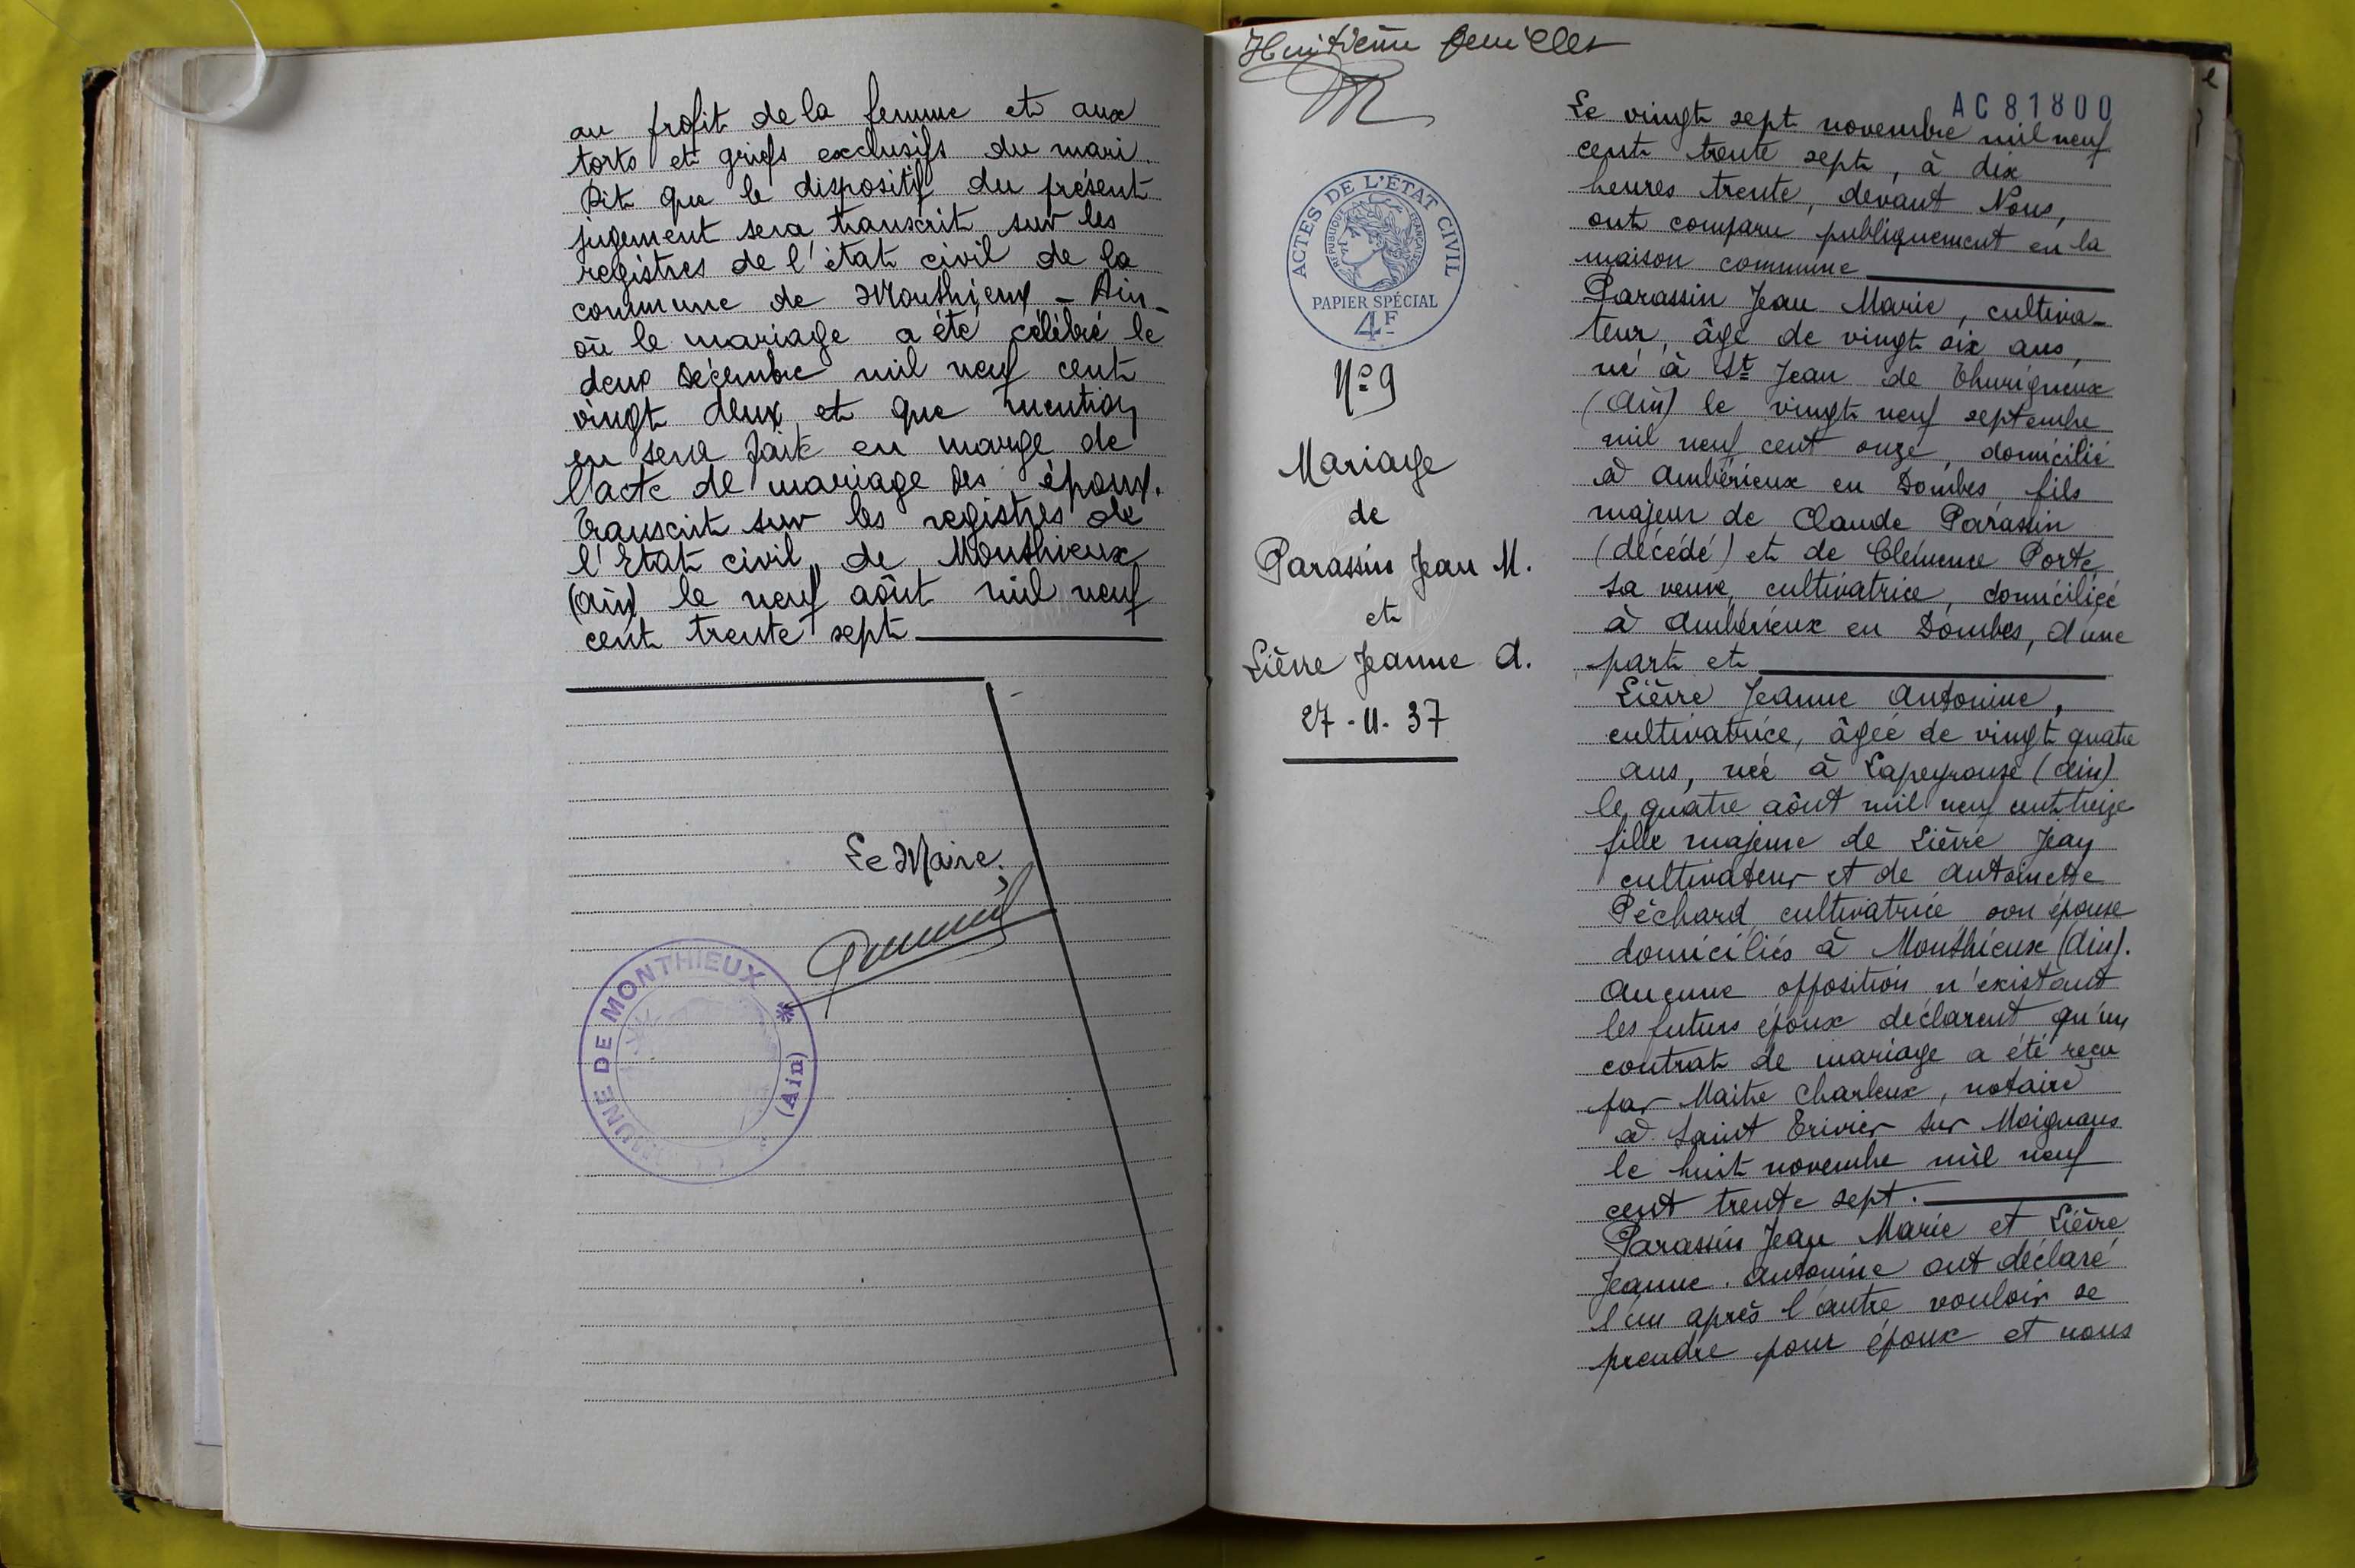 au profit de la femme et aux
torts et griefs exclusifs du mari.
Dit que le dispositif du présent
jugement sera transcrit sur les
registres de l'état civil de la
commune de Monthieux - Ain -
où le mariage a été célébré le
deux Décembre mil neuf cent
vingt deux et que mention
en sera faite en marge de
l'acte de mariage des époux.
Transcrit sur les registres de
l'Etat civil de Monthieux
(Ain) le neuf août mil neuf
cent trente sept
Le Maire.
MUNE DE MONTHIEUX
* (Ain)
Huitième feuillet
AC 81800
ACTES DE L'ÉTAT CIVIL
RÉPUBLIQUE FRANÇAISE
PAPIER SPÉCIAL
4F
N° 9
Mariage
de
Parassin Jean M.
et
Lièvre Jeanne A.
27-11-37
Le vingt sept novembre mil neuf
cent trente sept, à dix
heures trente, devant Nous,
ont comparu publiquement en la
maison commune
Parassin Jean Marie, cultiva-
teur, âgé de vingt six ans,
né à St Jean de Thurigneux
(Ain) le vingt neuf septembre
mil neuf cent onze, domicilié
à Ambérieux en Dombes, fils
majeur de Claude Parassin
(décédé) et de Clémence Porte
sa veuve, cultivatrice, domiciliée
à Ambérieux en Dombes, d'une
part et
Lièvre Jeanne Antonine,
cultivatrice, âgée de vingt quatre
ans, née à Lapeyrouse (Ain)
le quatre août mil neuf cent treize
fille majeure de Lièvre Jean
cultivateur et de Antoinette
Péchard cultivatrice son épouse
domiciliés à Monthieux (Ain).
Aucune opposition n'existant
les futurs époux déclarent qu'un
contrat de mariage a été reçu
par Maitre Charleux, notaire
à Saint Trivier sur Moignans
le huit novembre mil neuf
cent trente sept.
Parassin Jean Marie et Lièvre
Jeanne Antonine ont déclaré
l'un après l'autre vouloir se
prendre pour époux et nous